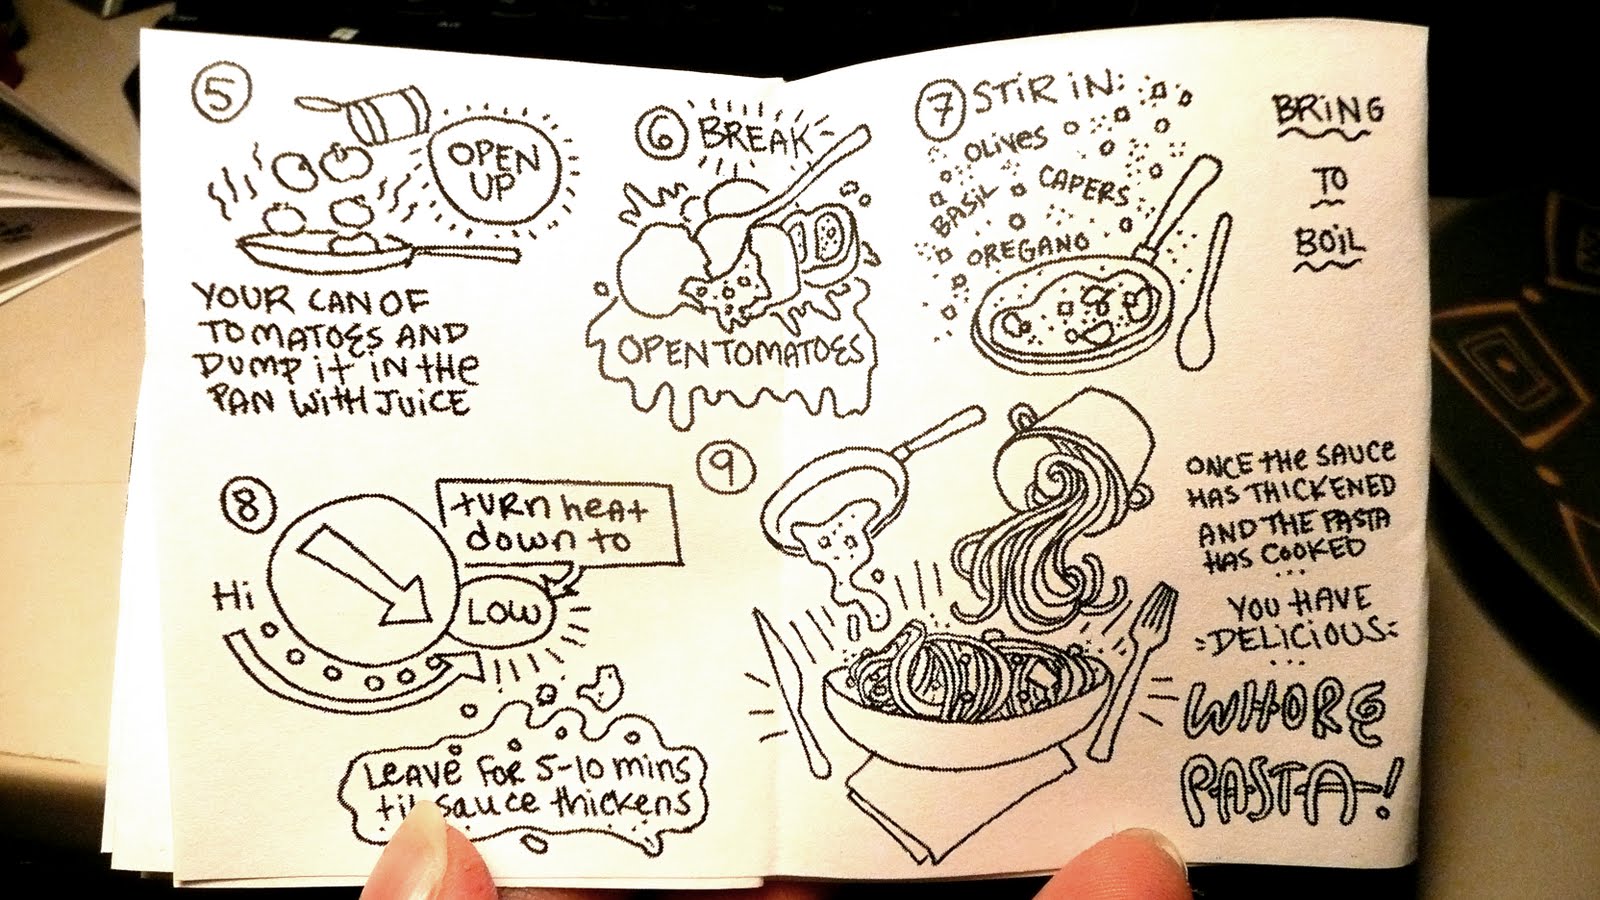 5
OPEN
UP
YOUR CAN OF
TOMATOES AND
DUMP it iN the
PAN WITH JUiCE
6 BREAK
OPEN TOMATOES
7 STiR iN:
OLiVES
BASiL CAPERS
OREGANO
BRiNG
TO
BOiL
8
turn heat
down to
Hi
LOW
LEAVE FOR 5-10 mins
til sauce thickens
9
ONCE the SAUCE
HAS THICKENED
AND THE PASTA
HAS COOKED
...
YOU HAVE
DELICIOUS
...
WHORE
PASTA!